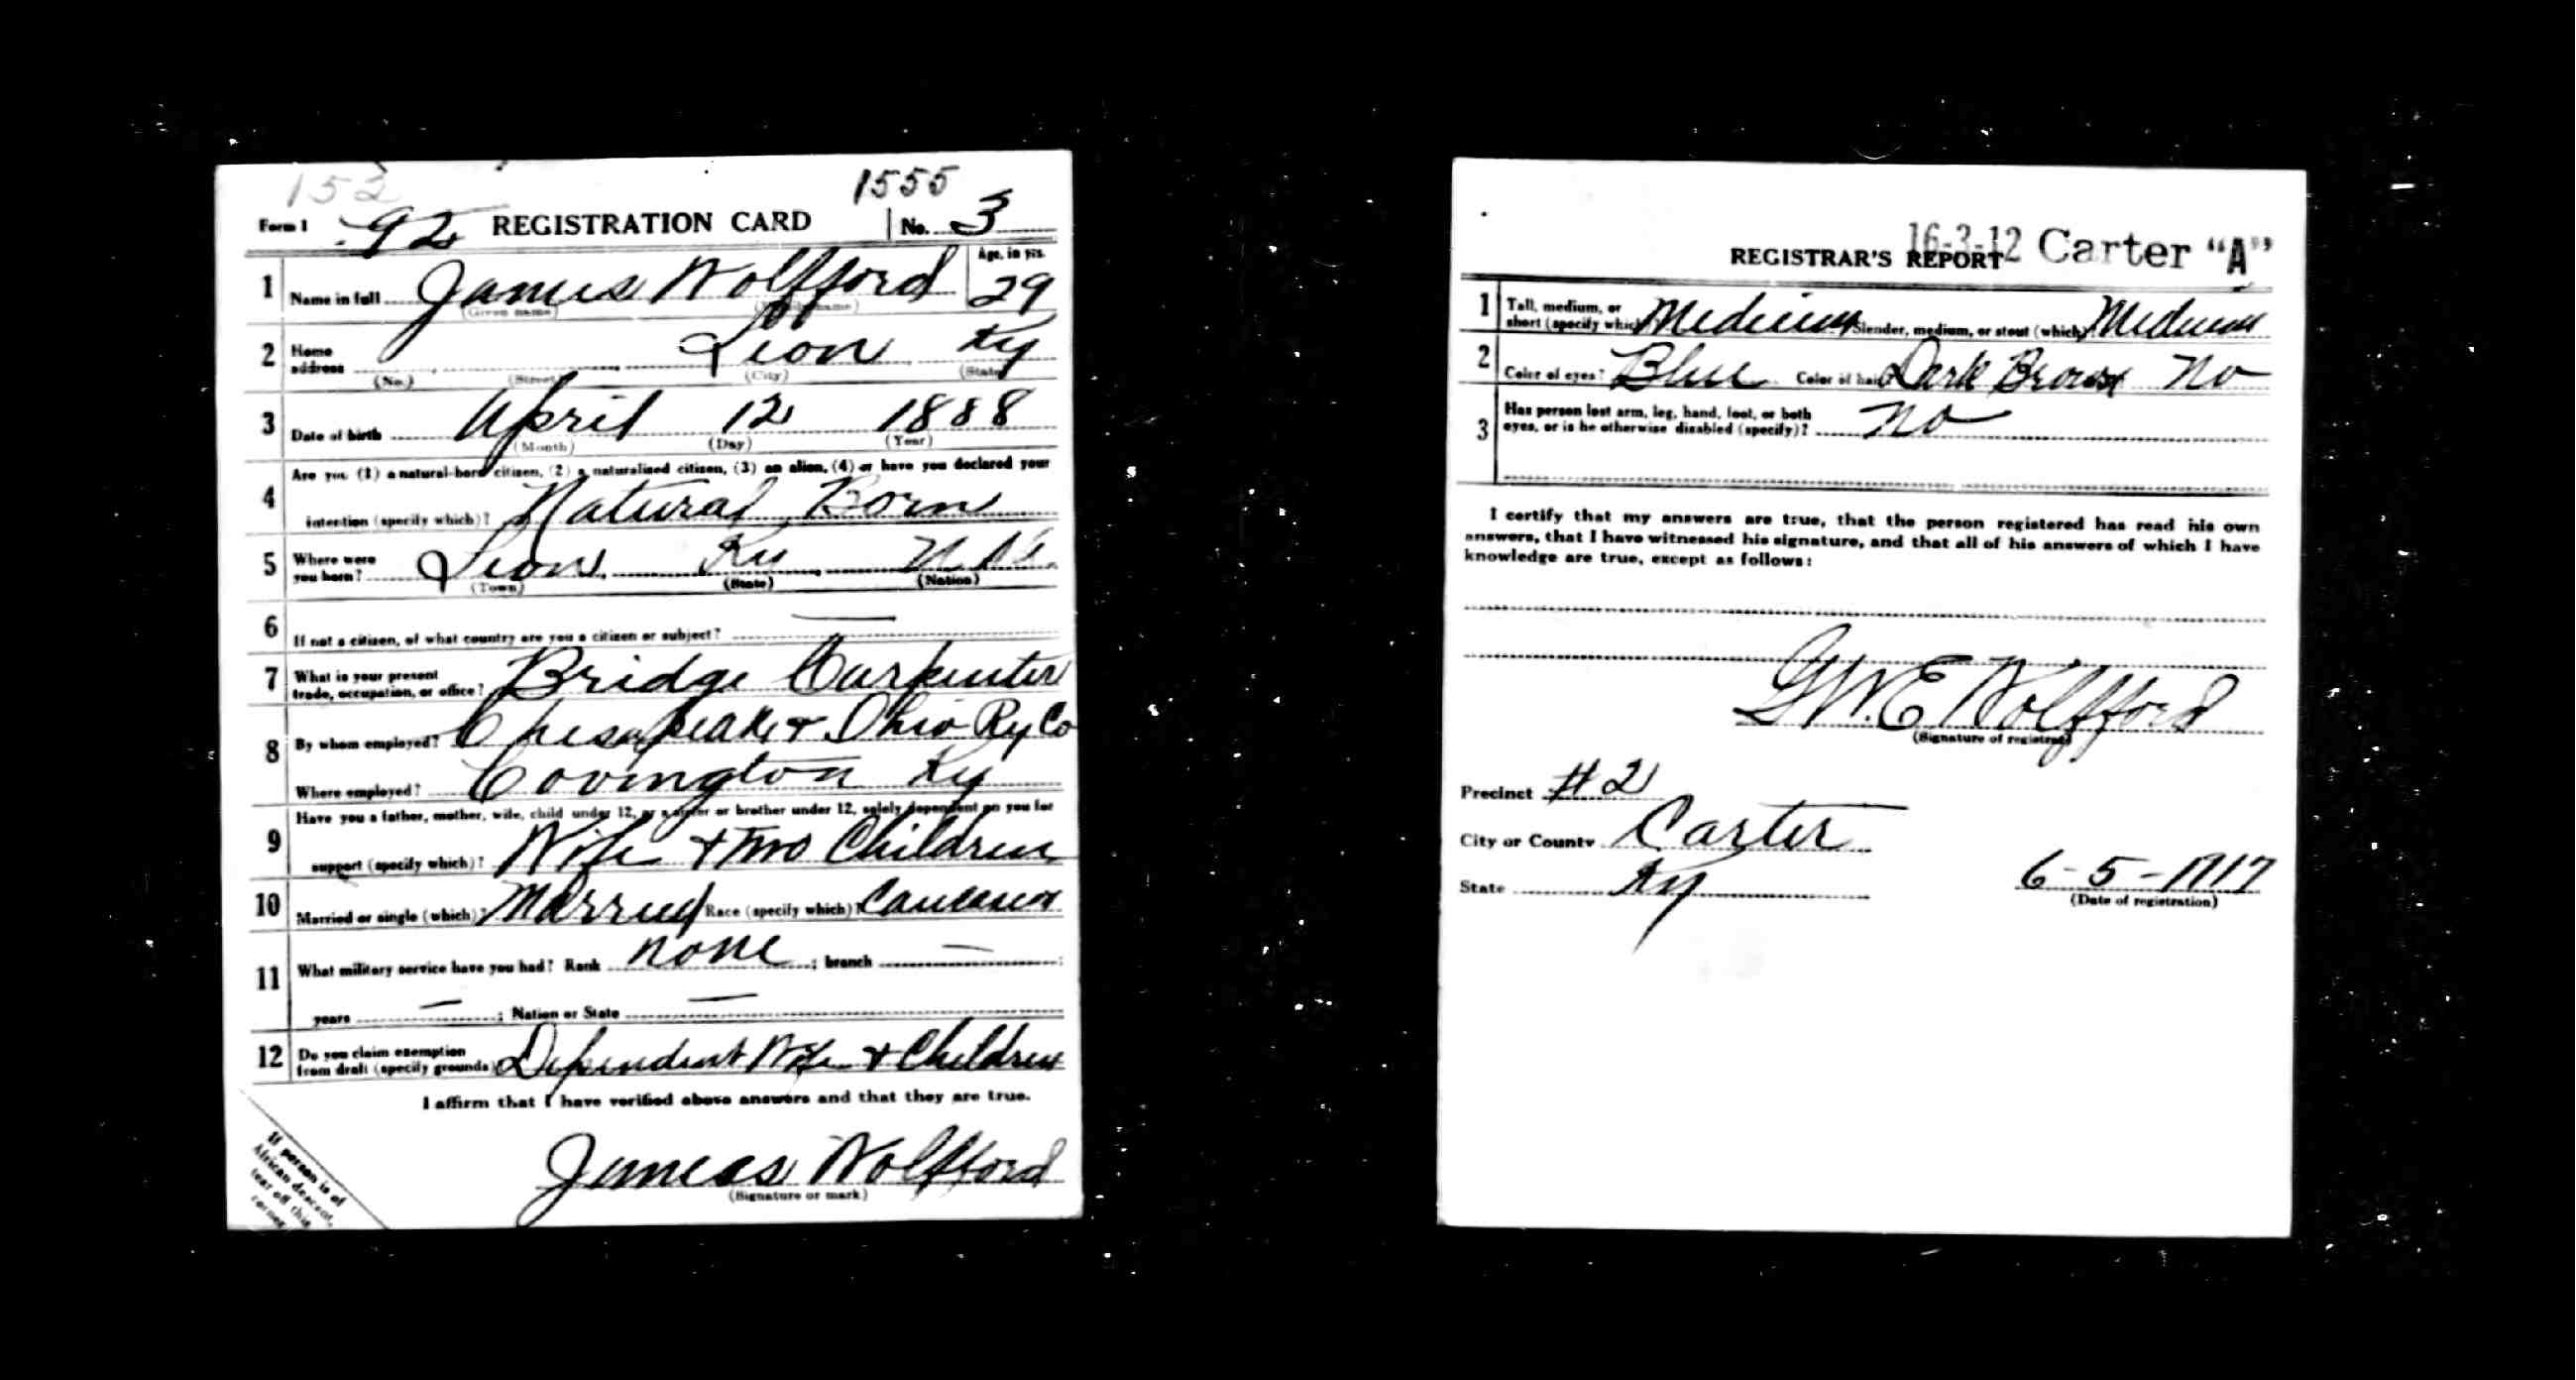 152
1555
Form 1 92 REGISTRATION CARD No. 3
1 Name in full James Wolfford Age, in yrs. 29
(Given name) (Family name)
2 Home address Leon Ky
(No.) (Street) (City) (State)
3 Date of birth April 12 1888
(Month) (Day) (Year)
4 Are you (1) a natural-born citizen, (2) a naturalized citizen, (3) an alien, (4) or have you declared your
intention (specify which)? Natural Born
5 Where were you born? Leon Ky
(Town) (State) (Nation)
6 If not a citizen, of what country are you a citizen or subject? —
7 What is your present trade, occupation, or office? Bridge Carpenter
8 By whom employed? Chesapeake & Ohio Ry Co
Where employed? Covington Ky
9 Have you a father, mother, wife, child under 12, or a sister or brother under 12, solely dependent on you for
support (specify which)? Wife & Two Children
10 Married or single (which)? Married Race (specify which)? Caucasian
11 What military service have you had? Rank none ; branch — ;
years — ; Nation or State —
12 Do you claim exemption from draft (specify grounds)? Dependent Wife & Children
I affirm that I have verified above answers and that they are true.
Jameas Wolfford
(Signature or mark)
If person is of
African descent,
tear off this
corner.
16-3-12 Carter "A"
REGISTRAR'S REPORT
1 Tall, medium, or short (specify which)? Medium Slender, medium, or stout (which)? Medium
2 Color of eyes? Blue Color of hair? Dark Brown No
3 Has person lost arm, leg, hand, foot, or both
eyes, or is he otherwise disabled (specify)? No
I certify that my answers are true, that the person registered has read his own
answers, that I have witnessed his signature, and that all of his answers of which I have
knowledge are true, except as follows:
G.W.E Wolfford
(Signature of registrar)
Precinct #2
City or County Carter
State Ky 6-5-1917
(Date of registration)